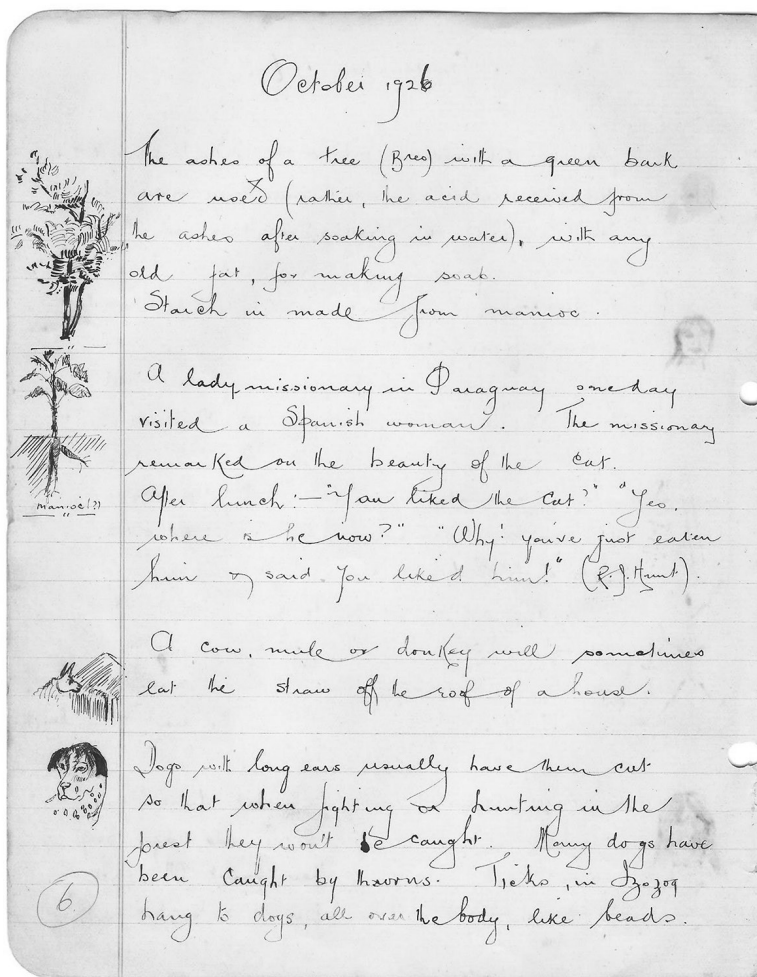 October 1926
The ashes of a tree (Breo) with a green bark
are used (rather, the acid received from
the ashes after soaking in water), with any
old fat, for making soap.
Starch is made from manioc.
A lady missionary in Paraguay one day
visited a Spanish woman. The missionary
remarked on the beauty of the cat.
After lunch:— "You liked the cat?" "Yes,
where is he now?" "Why! you've just eaten
him & said you liked him!" (R.J. Hunt).
manioc (?)
A cow, mule or donkey will sometimes
eat the straw off the roof of a house.
Dogs with long ears usually have them cut
so that when fighting or hunting in the
forest they won't be caught. Many dogs have
been caught by thorns. Ticks, in Izozog
hang to dogs, all over the body, like beads.
6